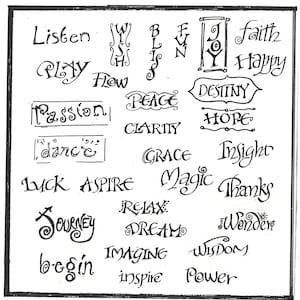 Listen
WISH
BLISS
FUN
JOY
faith
PLAY
Flow
Happy
Passion
PEACE
DESTINY
CLARITY
HOPE
dance
GRACE
Insight
LUCK
ASPIRE
Magic
Thanks
JOURNEY
RELAX
DREAM
Wonder
begin
IMAGINE
WISDOM
inspire
Power